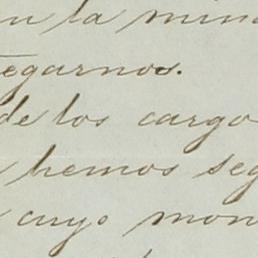 en la mina
egarnos.
de los cargo
hemos seg
cuyo mon